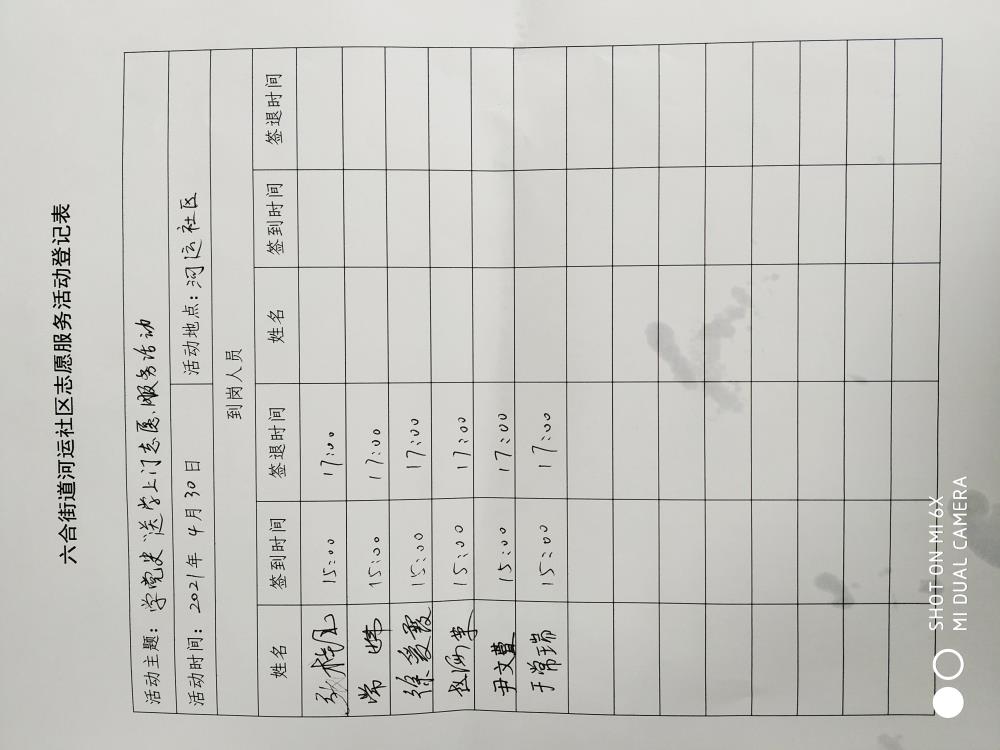 六合街道河运社区志愿服务活动登记表
活动主题：学党史 送学上门志愿服务活动
活动时间：2021年 4月30日 活动地点：河运社区
到岗人员
姓名 签到时间 签退时间 姓名 签到时间 签退时间
15:00 17:00
常 15:00 17:00
徐爱霞 15:00 17:00
15:00 17:00
尹文 15:00 17:00
于常瑞 15:00 17:00
SHOT ON MI 6X
MI DUAL CAMERA